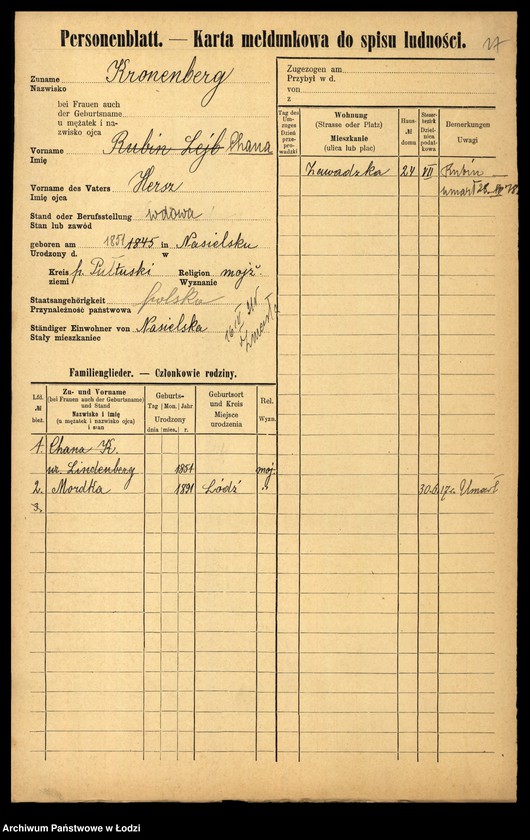 Personenblatt. — Karta meldunkowa do spisu ludności.
27
Zuname Kronenberg
Nazwisko
bei Frauen auch
der Geburtsname
u mężatek i na-
zwisko ojca
Vorname Rubin Lejb Chana
Imię
Vorname des Vaters Hersz
Imię ojca
Stand oder Berufsstellung wdowa
Stan lub zawód
geboren am 1851 1845 in Nasielsku
Urodzony d. w
Kreis p. Pułtuski Religion mojż.
ziemi Wyznanie
Staatsangehörigkeit polska
Przynależność państwowa
Ständiger Einwohner von Nasielska
Stały mieszkaniec
16 IV
zmarła
Zugezogen am
Przybył w d.
von
z
Tag des Umzuges
Dzień przeprowadzki
Wohnung
(Strasse oder Platz)
Mieszkanie
(ulica lub plac)
Haus-
№
domu
Steuerbezirk
Dzielnica podatkowa
Bemerkungen
Uwagi
Zawadzka 24 VII Rubin
umarł 28
30.6.17r. Umarł
Familienglieder. — Członkowie rodziny.
Lfd.
№
bież.
Zu- und Vorname
(bei Frauen auch der Geburtsname)
und Stand
Nazwisko i imię
(u mężatek i nazwisko ojca)
i stan
Geburts-
Tag Mon. Jahr
Urodzony
dnia mies. r.
Geburtsort
und Kreis
Miejsce
urodzenia
Rel.
Wyzn.
1. Chana K.
ur. Lindenberg 1851 moj.
2. Mordka 1891 Łódź "
3.
Archiwum Państwowe w Łodzi